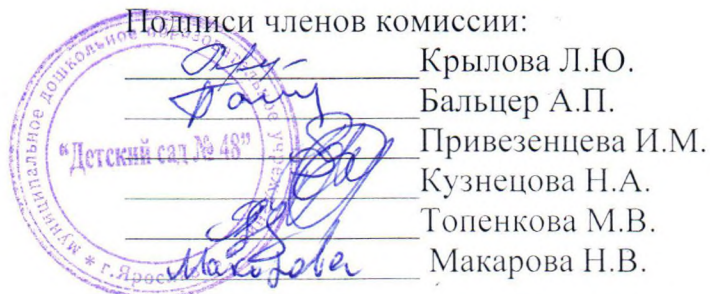 Подписи членов комиссии:
Крылова Л.Ю.
Бальцер А.П.
Привезенцева И.М.
Кузнецова Н.А.
Топенкова М.В.
Макарова Н.В.
Макарова
Муниципальное дошкольное образовательное учреждение
"Детский сад № 48"
* г.Яросл